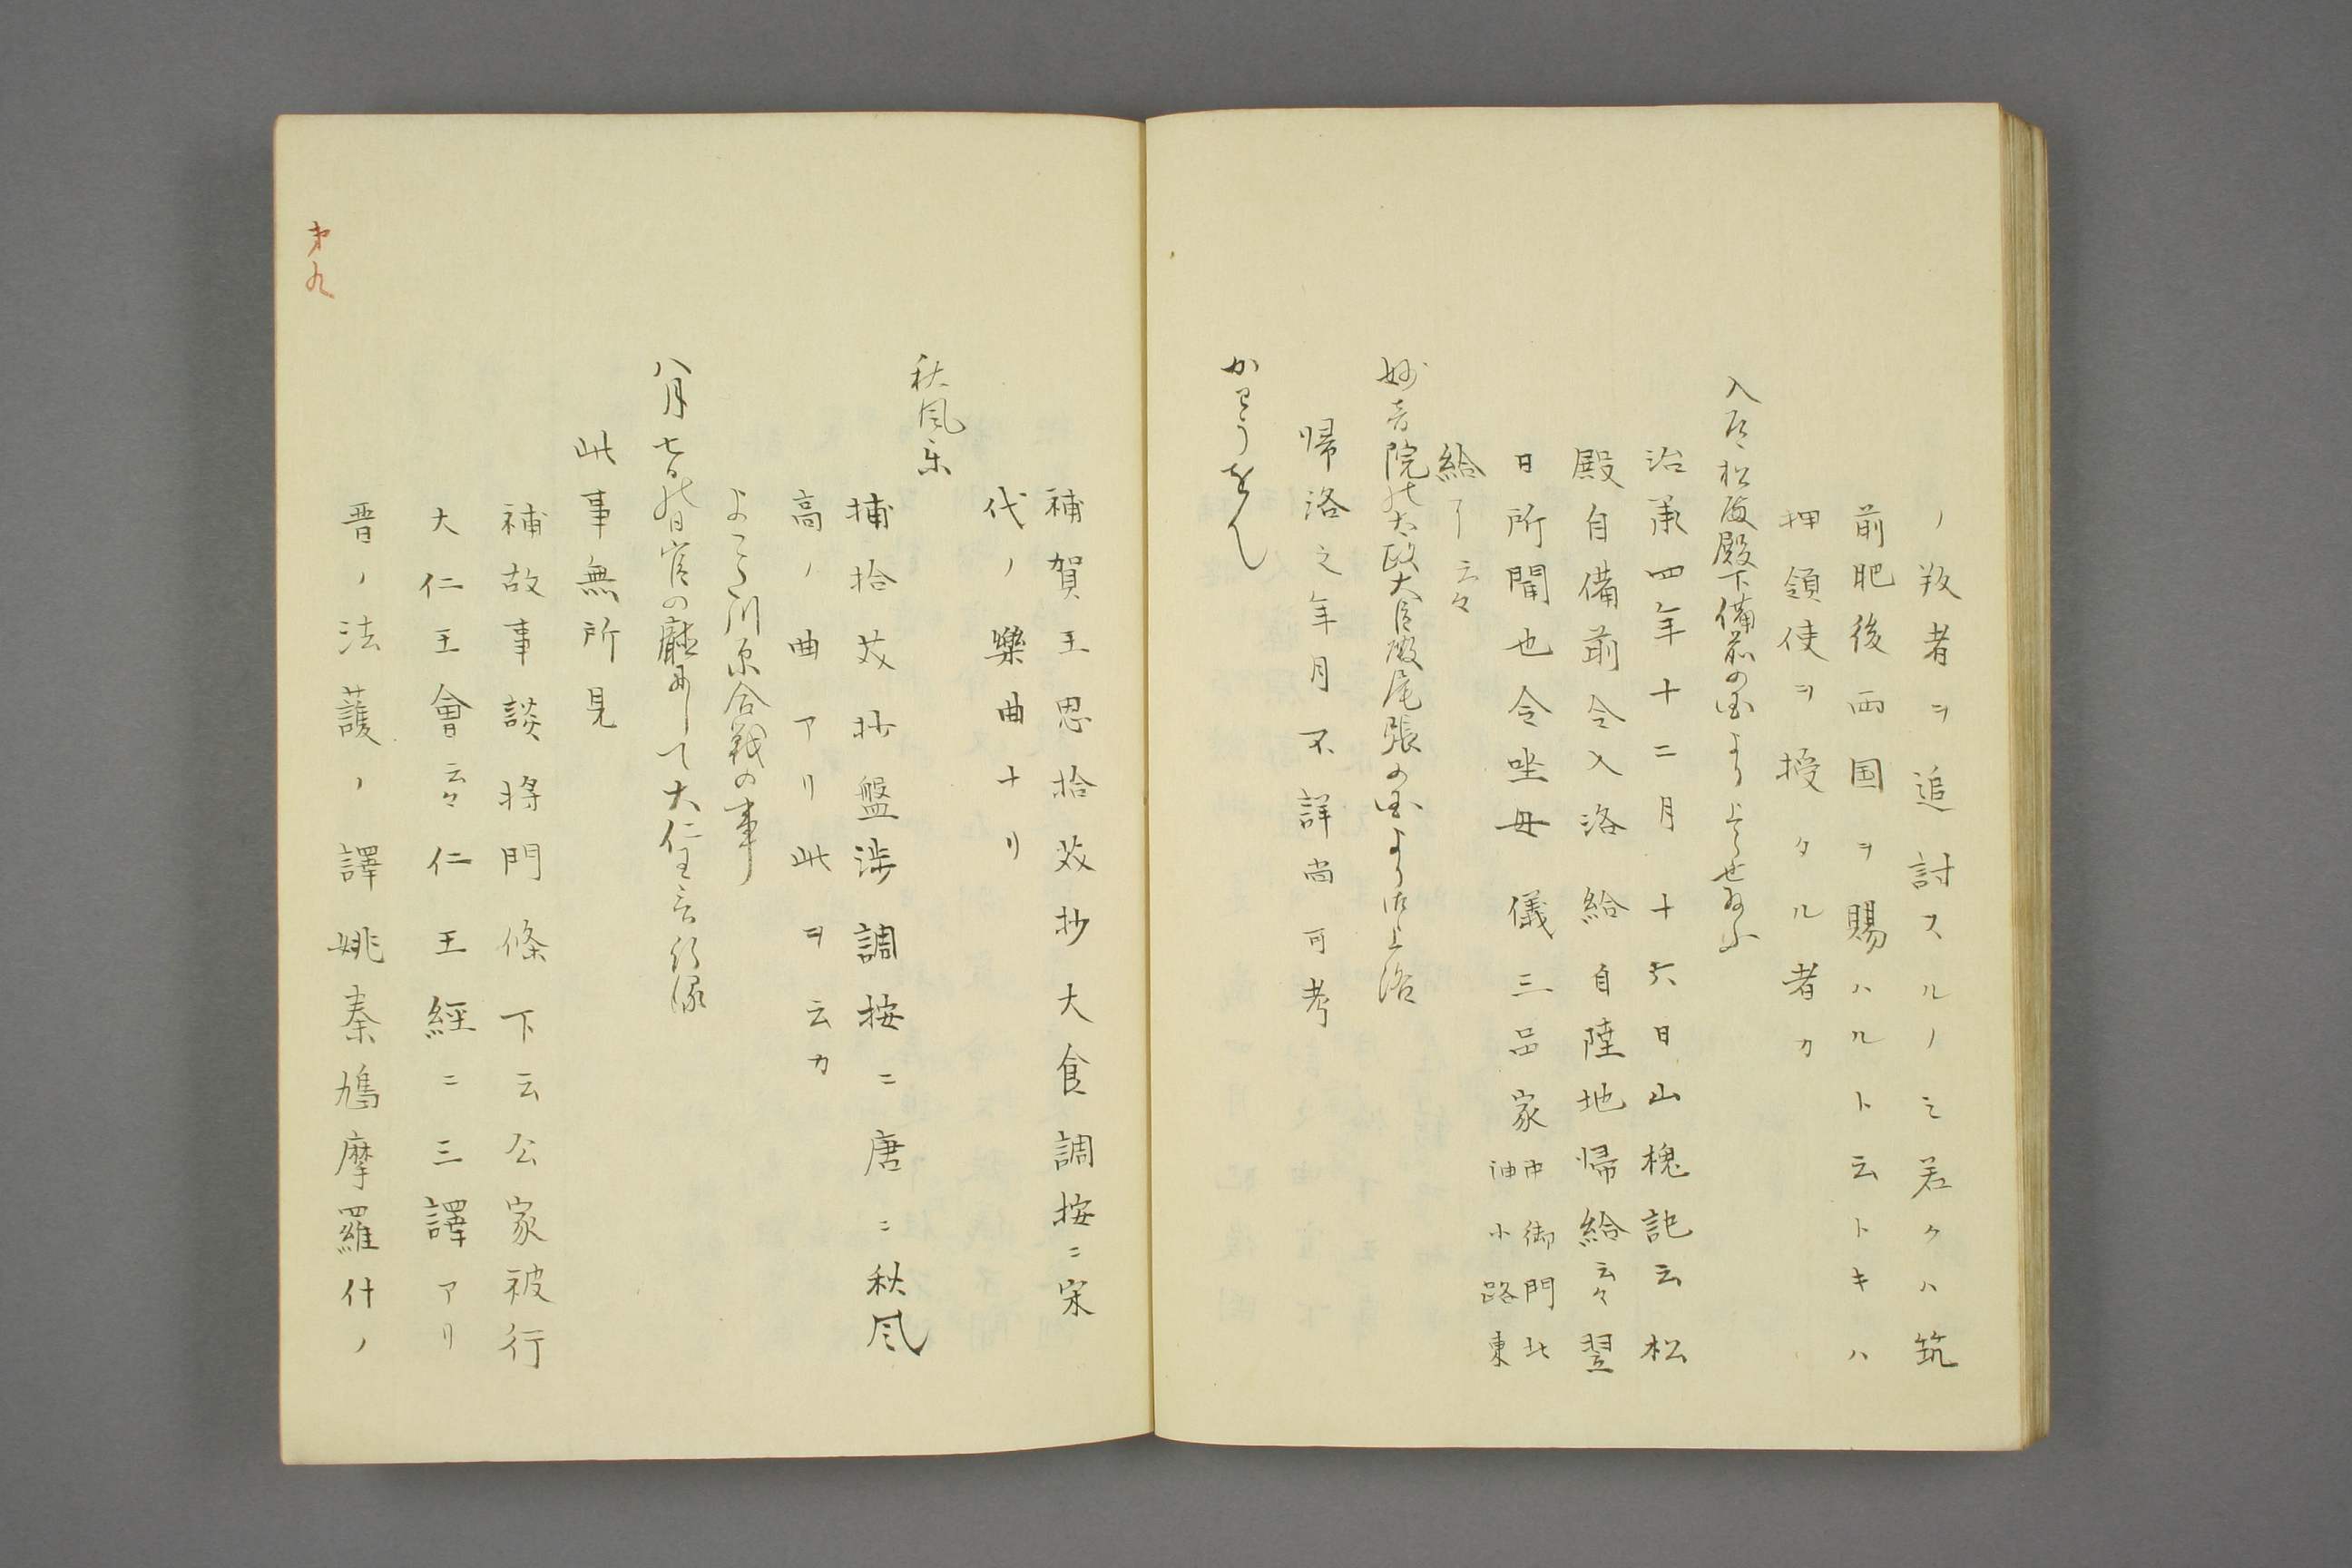 ノ叛者ヲ追討スルノミ若クハ筑
前肥後両国ヲ賜ハルト云トキハ
押領使ヲ授タルル者カ
入道松殿殿下備前の国より上らせ給ふ
治承四年十二月十六日山槐記云松
殿自備前令入洛給自陸地帰給云々翌
日所聞也令坐毋儀三品家中御門北油小路東
給了云々
妙音院の太政大臣殿尾張の国より御上洛
帰洛之年月不詳尚可考
かわうをん
補賀王恩拾芥抄大食調按ニ宋
代ノ樂曲ナリ
秋風楽
捕拾芥抄盤渉調按ニ唐ニ秋風
高ノ曲アリ此ヲ云カ
よこた川原合戦の事
八月七日の日官の廳にて大仁王会行はる
此事無所見
補故事談将門條下云公家被行
大仁王會云々仁王經ニ三譯アリ
晋ノ法護ノ譯姚秦鳩摩羅什ノ
第九